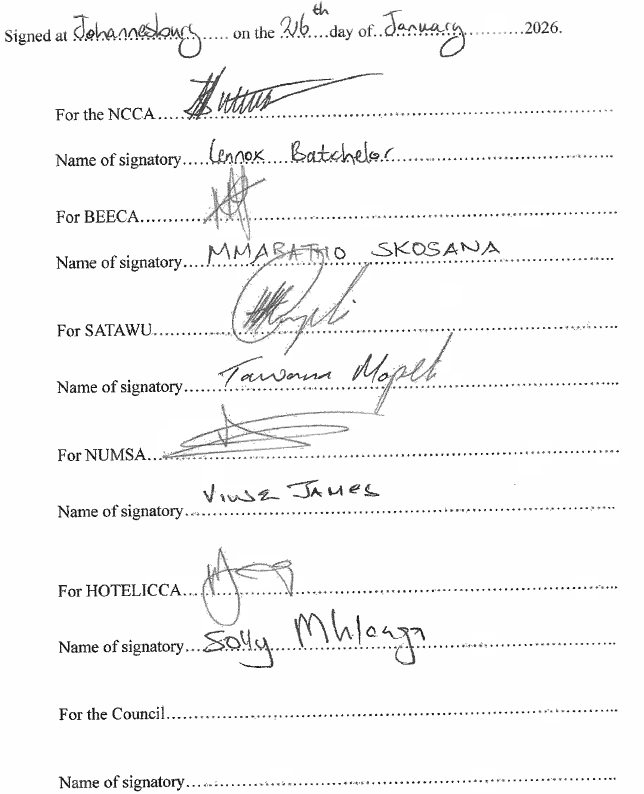 Signed at Johannesburg on the 26th day of January 2026.
For the NCCA
Name of signatory Lennox Batchelor
For BEECA
Name of signatory MMABATHO SKOSANA
For SATAWU
Name of signatory
For NUMSA
Name of signatory JAMES
For HOTELICCA
Name of signatory Solly
For the Council
Name of signatory